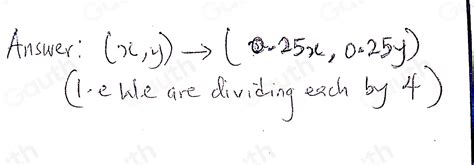 Answer: (x,y) → (0.25x, 0.25y)
(I.e We are dividing each by 4)